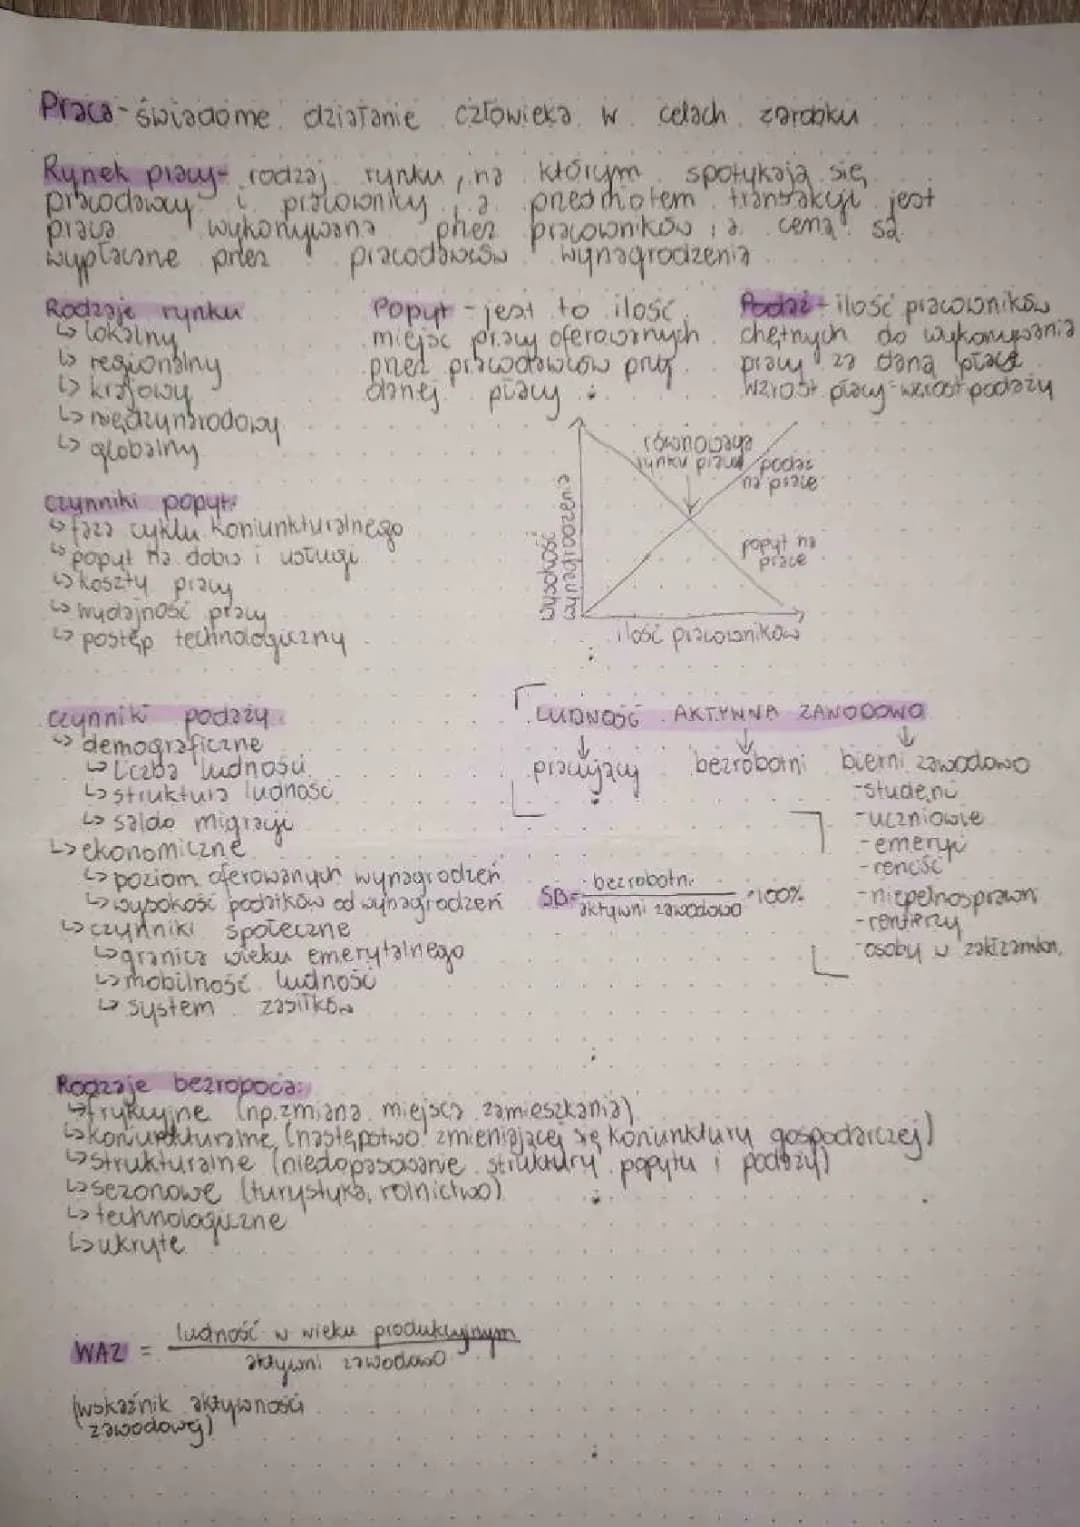 Praca - świadome działanie człowieka w celach zarobku
Rynek pracy - rodzaj rynku, na którym spotykają się
pracodawcy i pracownicy, a przedmiotem transakcji jest
praca wykonywana przez pracowników, a ceną są
wypłacane przez pracodawców wynagrodzenia
Rodzaje rynku
↳ lokalny
↳ regionalny
↳ krajowy
↳ międzynarodowy
↳ globalny
Popyt - jest to ilość
miejsc pracy oferowanych
przez pracodawców przy
danej płacy
Podaż - ilość pracowników
chętnych do wykonywania
pracy za daną płacę
wzrost płacy - wzrost podaży
czynniki popytu:
↳ faza cyklu koniunkturalnego
↳ popyt na dobra i usługi
↳ koszty pracy
↳ wydajność pracy
↳ postęp technologiczny
wysokość
wynagrodzenia
równowaga
rynku pracy
podaż
na pracę
popyt na
pracę
ilość pracowników
czynniki podaży
↳ demograficzne
↳ liczba ludności
↳ struktura ludności
↳ saldo migracji
↳ ekonomiczne
↳ poziom oferowanych wynagrodzeń
↳ wysokość podatków od wynagrodzeń
↳ czynniki społeczne
↳ granica wieku emerytalnego
↳ mobilność ludności
↳ system zasiłków
LUDNOŚĆ AKTYWNA ZAWODOWO
↓ ↓ ↓
pracujący bezrobotni bierni zawodowo
- studenci
- uczniowie
- emeryci
- renciści
- niepełnosprawni
- rentierzy
- osoby w
SB = bezrobotni
aktywni zawodowo · 100%
Rodzaje bezrobocia:
↳ frykcyjne (np. zmiana miejsca zamieszkania)
↳ koniunkturalne (następstwo zmieniającej się koniunktury gospodarczej)
↳ strukturalne (niedopasowanie struktury popytu i podaży)
↳ sezonowe (turystyka, rolnictwo)
↳ technologiczne
↳ ukryte
WAZ = ludność w wieku produkcyjnym
aktywni zawodowo
(wskaźnik aktywności
zawodowej)